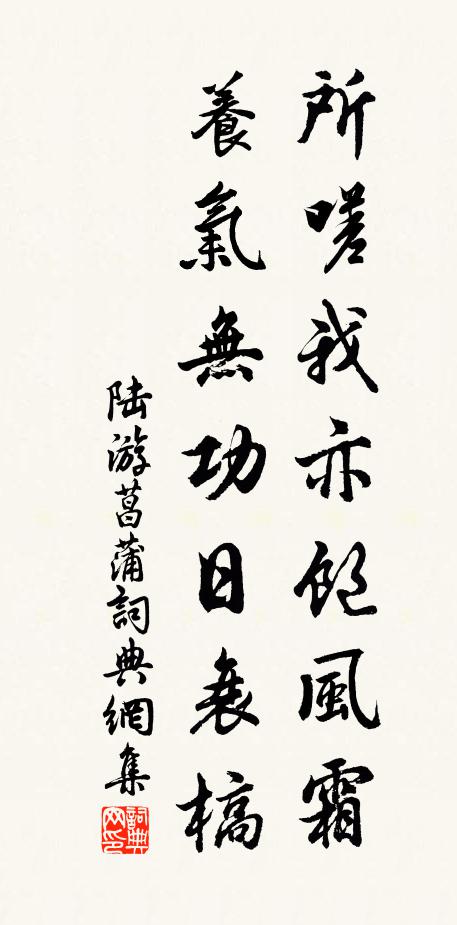 所嗟我亦飽風霜
養氣無功日衰槁
陸游菖蒲詞典網集
詞典网印